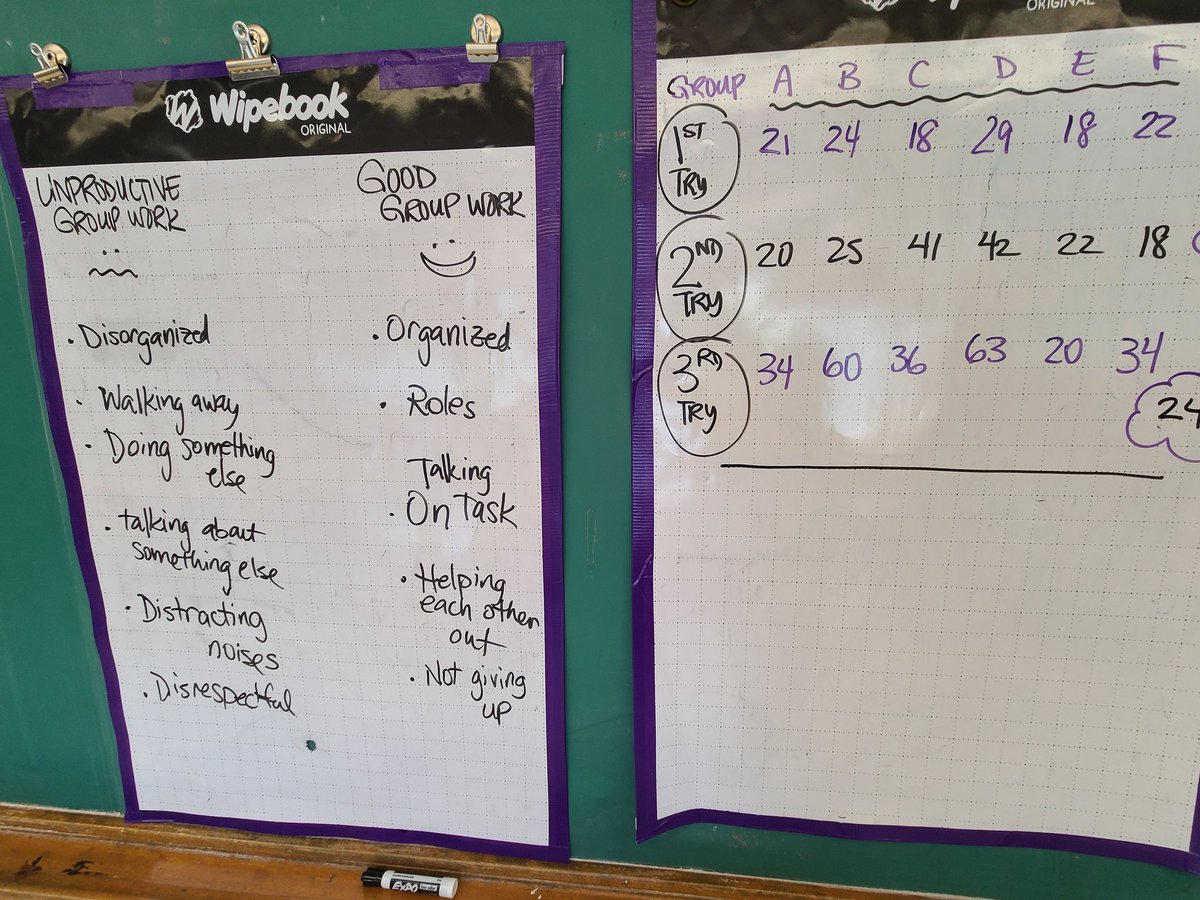 Wipebook
ORIGINAL
UNPRODUCTIVE
GROUP WORK
• Disorganized
• Walking away
• Doing something
else
• talking about
something else
• Distracting
noises
• Disrespectful
GOOD
GROUP WORK
• Organized
• Roles
Talking
• On Task
• Helping
each other
out
• Not giving
up
ORIGINAL
GROUP A B C D E F
1ST TRY 21 24 18 29 18 22
2ND TRY 20 25 41 42 22 18
3RD TRY 34 60 36 63 20 34
24
EXPO